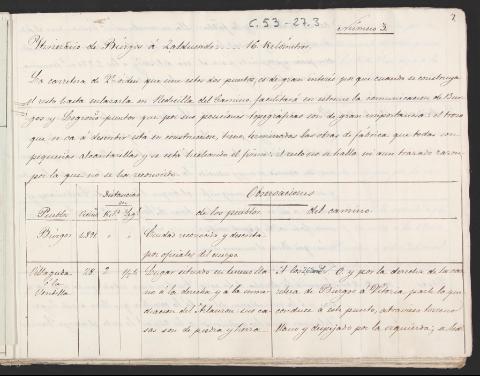 C.53-27.3
Número 3.
2
Itinerario de Búrgos á Zalduendo 16 Kilómetros.
La carretera de 2º orden que une estos dos puntos, es de gran interés por que cuando se construya
el resto hasta enlazarla en Redecilla del Camino, facilitará en estremo la comunicacion de Bur-
gos y Logroño puntos que por sus posiciones topográficas son de gran importancia. El trozo
que se va á describir esta en construccion, tiene terminadas las obras de fabrica que todas son
pequeñas alcantarillas y se está haciendo el firme. El resto no se halla ni aun trazado razon
por la que no se ha reconocido.
Distancias en
Observaciones
Pueblos
Vecinos
Kils
Legs
de los pueblos
del camino.
Búrgos
4.831
"
"
Ciudad reconocida y descrita
por oficiales del cuerpo
Villayuda
ó la
Ventilla
28
2
Lugar situado en terreno lla-
no á la derecha y á la inme-
diacion del Arlanzon: sus ca-
sas son de piedra y tierra
A los O. y por la derecha de la car-
retera de Búrgos á Vitoria, parte la que
conduce á este punto, atraviesa terreno
llano y despejado por la izquierda; a los